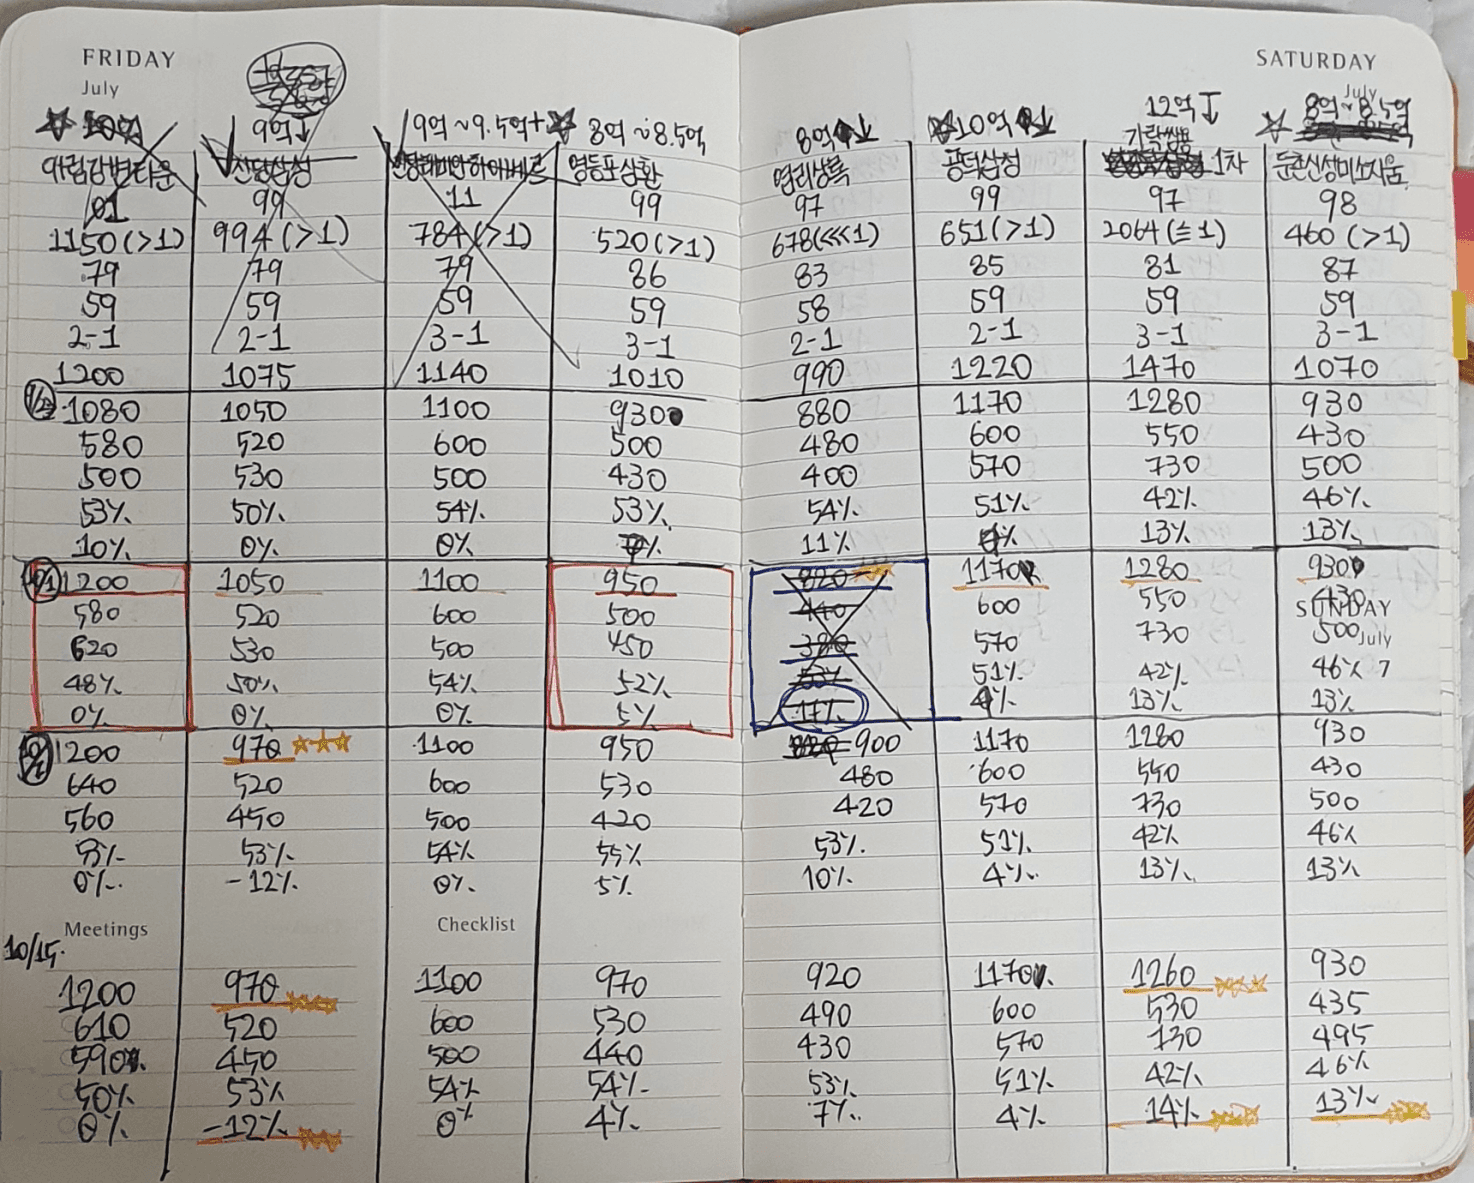 FRIDAY SATURDAY
July July
10억 9억↓ 9억~9.5억+ 8억~8.5억 8억↓ 10억↓ 12억↓ 8억~8.5억
가락쌍용
마림강변타운 신당삼성 하이베르 영등포삼환 염리상록 공덕삼성 1차 둔촌신성미소지움
01 99 11 99 97 99 97 98
1150(>1) 994(>1) 784(>1) 520(>1) 678(<<<1) 651(>1) 2064(≦1) 460(>1)
79 79 79 86 83 85 81 87
59 59 59 59 58 59 59 59
2-1 2-1 3-1 3-1 2-1 2-1 3-1 3-1
1200 1075 1140 1010 990 1220 1470 1070
1080 1050 1100 930 880 1170 1280 930
580 520 600 500 480 600 550 430
500 530 500 430 400 570 730 500
53% 50% 54% 53% 54% 51% 42% 46%
10% 0% 0% 7% 11% 4% 13% 13%
1200 1050 1100 950 820 1170 1280 930
580 520 600 500 440 600 550 430
SUNDAY
620 530 500 450 380 570 730 500
July
48% 50% 54% 52% 53% 51% 42% 46% 7
0% 0% 0% 5% 17% 4% 13% 13%
1200 970 1100 950 820 900 1170 1280 930
640 520 600 530 480 600 550 430
560 450 500 420 420 570 730 500
53% 53% 54% 55% 53% 51% 42% 46%
0% -12% 0% 5% 10% 4% 13% 13%
Meetings Checklist
10/15.
1200 970 1100 970 920 1170 1260 930
610 520 600 530 490 600 530 435
590 450 500 440 430 570 730 495
50% 53% 54% 54% 53% 51% 42% 46%
0% -12% 0% 4% 7% 4% 14% 13%